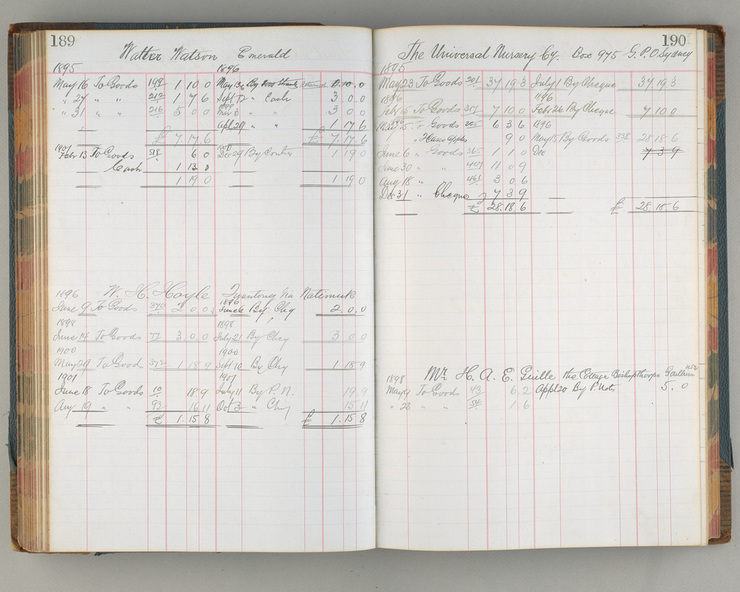 189
Walter Watson Emerald
1895 1896
May 16 To Goods 149 1 10 0 May 30 By 0.10.0
" 27 " " 212 1 7 6 Sept 17 " Cash 3.0.0
" 31 " " 216 5 0 0 3.0.0
1 17 6
£ 7 17 6 £ 7.17.6
1901
Feb 13 To Goods 6 0 Dec 29 By Contra 1 19 0
Cash 1 13 0
1 19 0 1 19 0
1896 W. H. Hoyle Natimuk
June 9 To Goods 2 0 0 1896 June 6 By Chq 2.0.0
1898 1898
June 14 To Goods 77 3 0 0 July 21 By Chq 3 0 0
1900 1900
May 29 To Goods 372 1 18 9 Sept 10 By Chq 1 18 9
1901 1901
June 18 To Goods 10 18 9 July 11 By P.N. 19 9
Aug 19 " " 92 16 11 Oct 2 " Chq 15 11
£ 1.15 8 £ 1.15 8
190
The Universal Nursery Cy. Box 975 G.P.O. Sydney
1895
May 23 To Goods 201 37 19 3 July 1 By Cheque 37 19 3
1896 1896
Feb 5 To Goods 7 10 0 Feb 26 By Cheque 7 10 0
To Goods 6 3 6 1896
9 0 May 15 By Goods 28 18 6
June 6 " Goods 365 1 1 0 Dec 7 3 9
June 30 " " 11 0 9
Aug 18 " " 463 3 0 6
Dec 31 " Cheque 7 3 9
£ 28.18.6 £ 28.18.6
1898 Mr H. A. E. Guille Bishopthorpe Goulburn
May 9 To Goods 43 6 2 Appl 20 By P. Note 5.0
" 23 " " 54 1 6